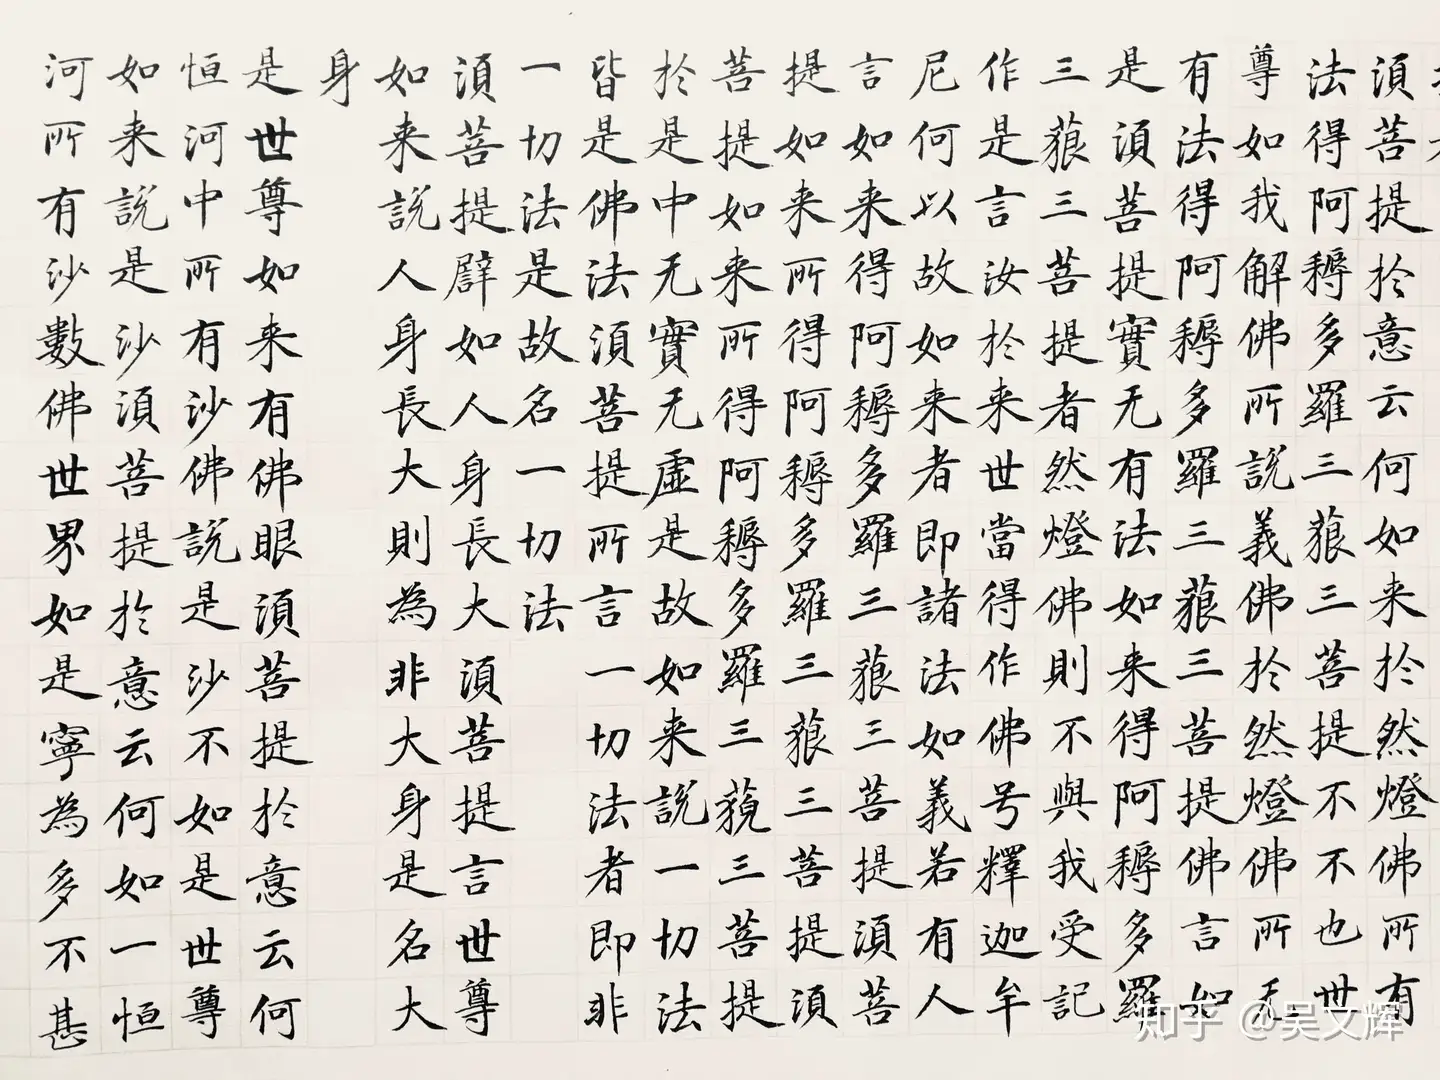 湏菩提扵意云何如来扵然燈佛所有
法得阿耨多羅三藐三菩提不不也世
尊如我解佛所説義佛扵然燈佛所无
有法得阿耨多羅三藐三菩提佛言如
是湏菩提實无有法如来得阿耨多羅
三藐三菩提者然燈佛則不與我受記
作是言汝扵来世當得作佛号釋迦牟
尼何以故如来者即諸法如義若有人
言如来得阿耨多羅三藐三菩提湏菩
提如来所得阿耨多羅三藐三菩提湏
菩提如来所得阿耨多羅三藐三菩提
扵是中无實无虛是故如来説一切法
皆是佛法湏菩提所言一切法者即非
一切法是故名一切法
湏菩提辟如人身長大湏菩提言世尊
如来説人身長大則為非大身是名大
身
是世尊如来有佛眼湏菩提扵意云何
恒河中所有沙佛説是沙不如是世尊
如来説是沙湏菩提扵意云何如一恒
河所有沙數佛世界如是寧為多不甚
知乎 @吴文辉